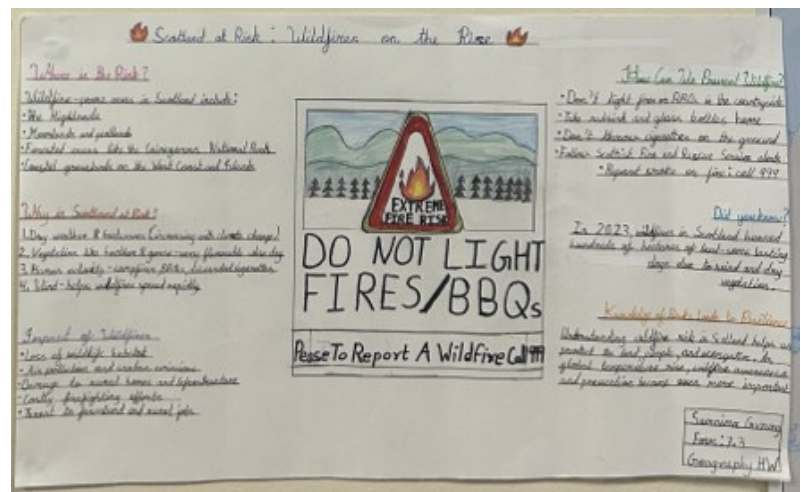 Scotland at Risk: Wildfires on the Rise
Where is the Risk?
Wildfire-prone areas in Scotland include:
• The Highlands
• Moorlands and peatlands
• Forested areas like the Cairngorms National Park
• Coastal grasslands on the West Coast and Islands
Why is Scotland at Risk?
1. Dry weather & heatwaves (increasing with climate change)
2. Vegetation like heather & gorse - very flammable when dry
3. Human activity - campfires, BBQs, discarded cigarettes
4. Wind - helps wildfires spread rapidly
Impact of Wildfires
• Loss of wildlife habitat
• Air pollution and carbon emissions
• Damage to rural homes and infrastructure
• Costly firefighting efforts
• Threat to farmland and rural jobs
EXTREME
FIRE RISK
DO NOT LIGHT
FIRES/BBQs
To Report A Wildfire Call 999
How Can We Prevent Wildfires?
• Don't light fires or BBQs in the countryside
• Take rubbish and glass bottles home
• Don't throw cigarettes on the ground
• Follow Scottish Fire and Rescue Service alerts
• Report smoke or fire: call 999
Did you know?
In 2023, wildfires in Scotland burned
hundreds of hectares of land - some lasting
days due to wind and dry
vegetation.
Knowledge of Risks Leads to Resilience
Understanding wildfire risk in Scotland helps us
protect our land, people, and ecosystems. As
global temperatures rise, wildfire awareness
and prevention become even more important
Form: 7.3
Geography HW